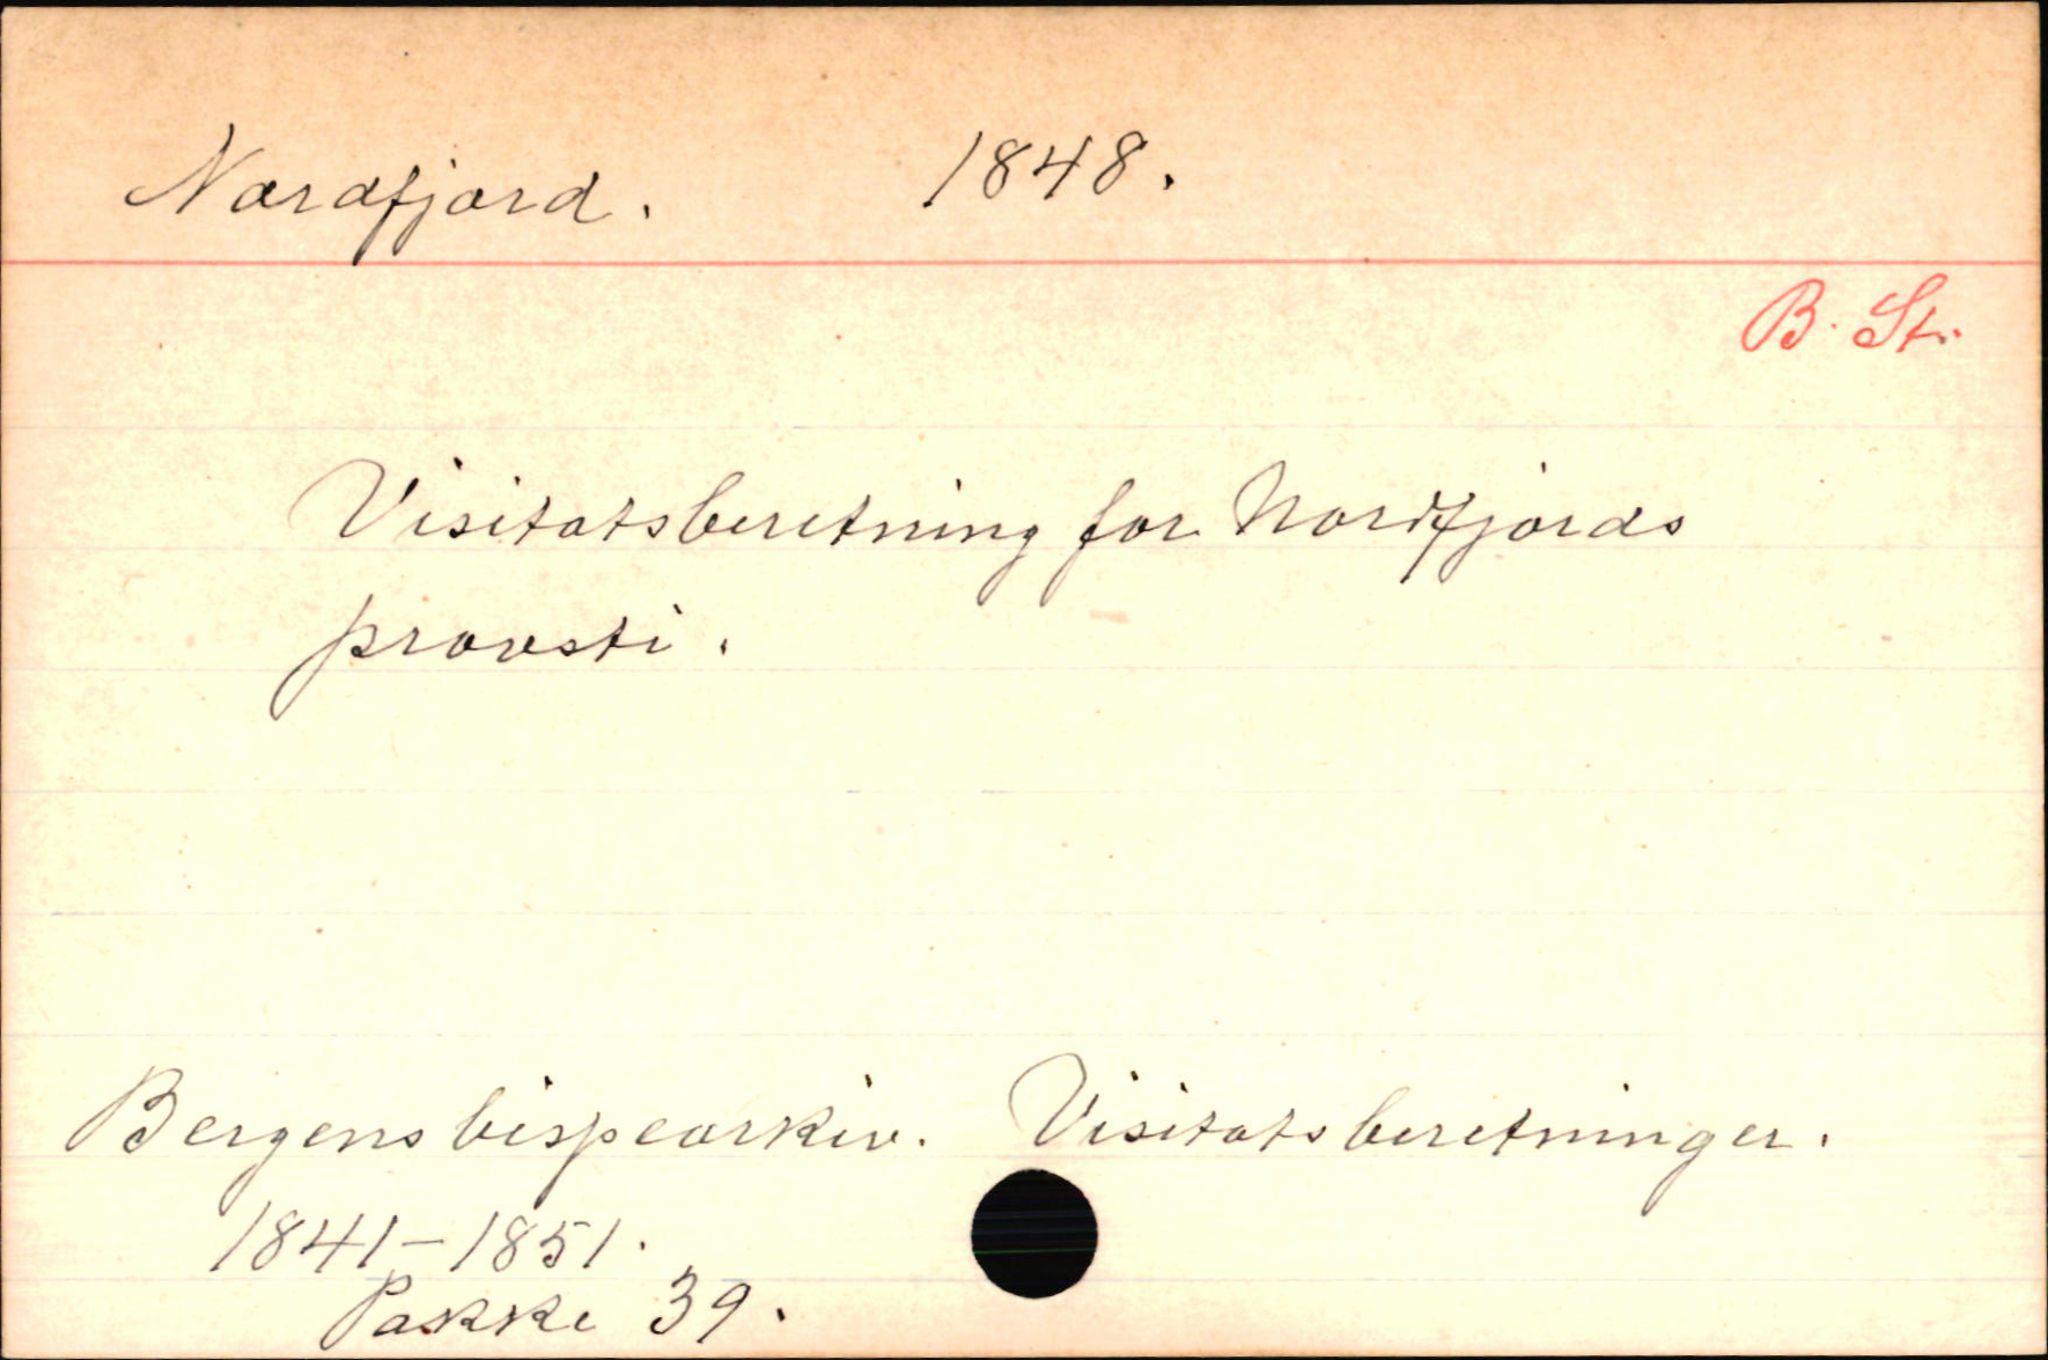 Nordfjord. 1848.
B. St.
Visitatsberetning for Nordfjords
provsti.
Bergens bispearkiv. Visitatsberetninger.
1841-1851.
Pakke 39.